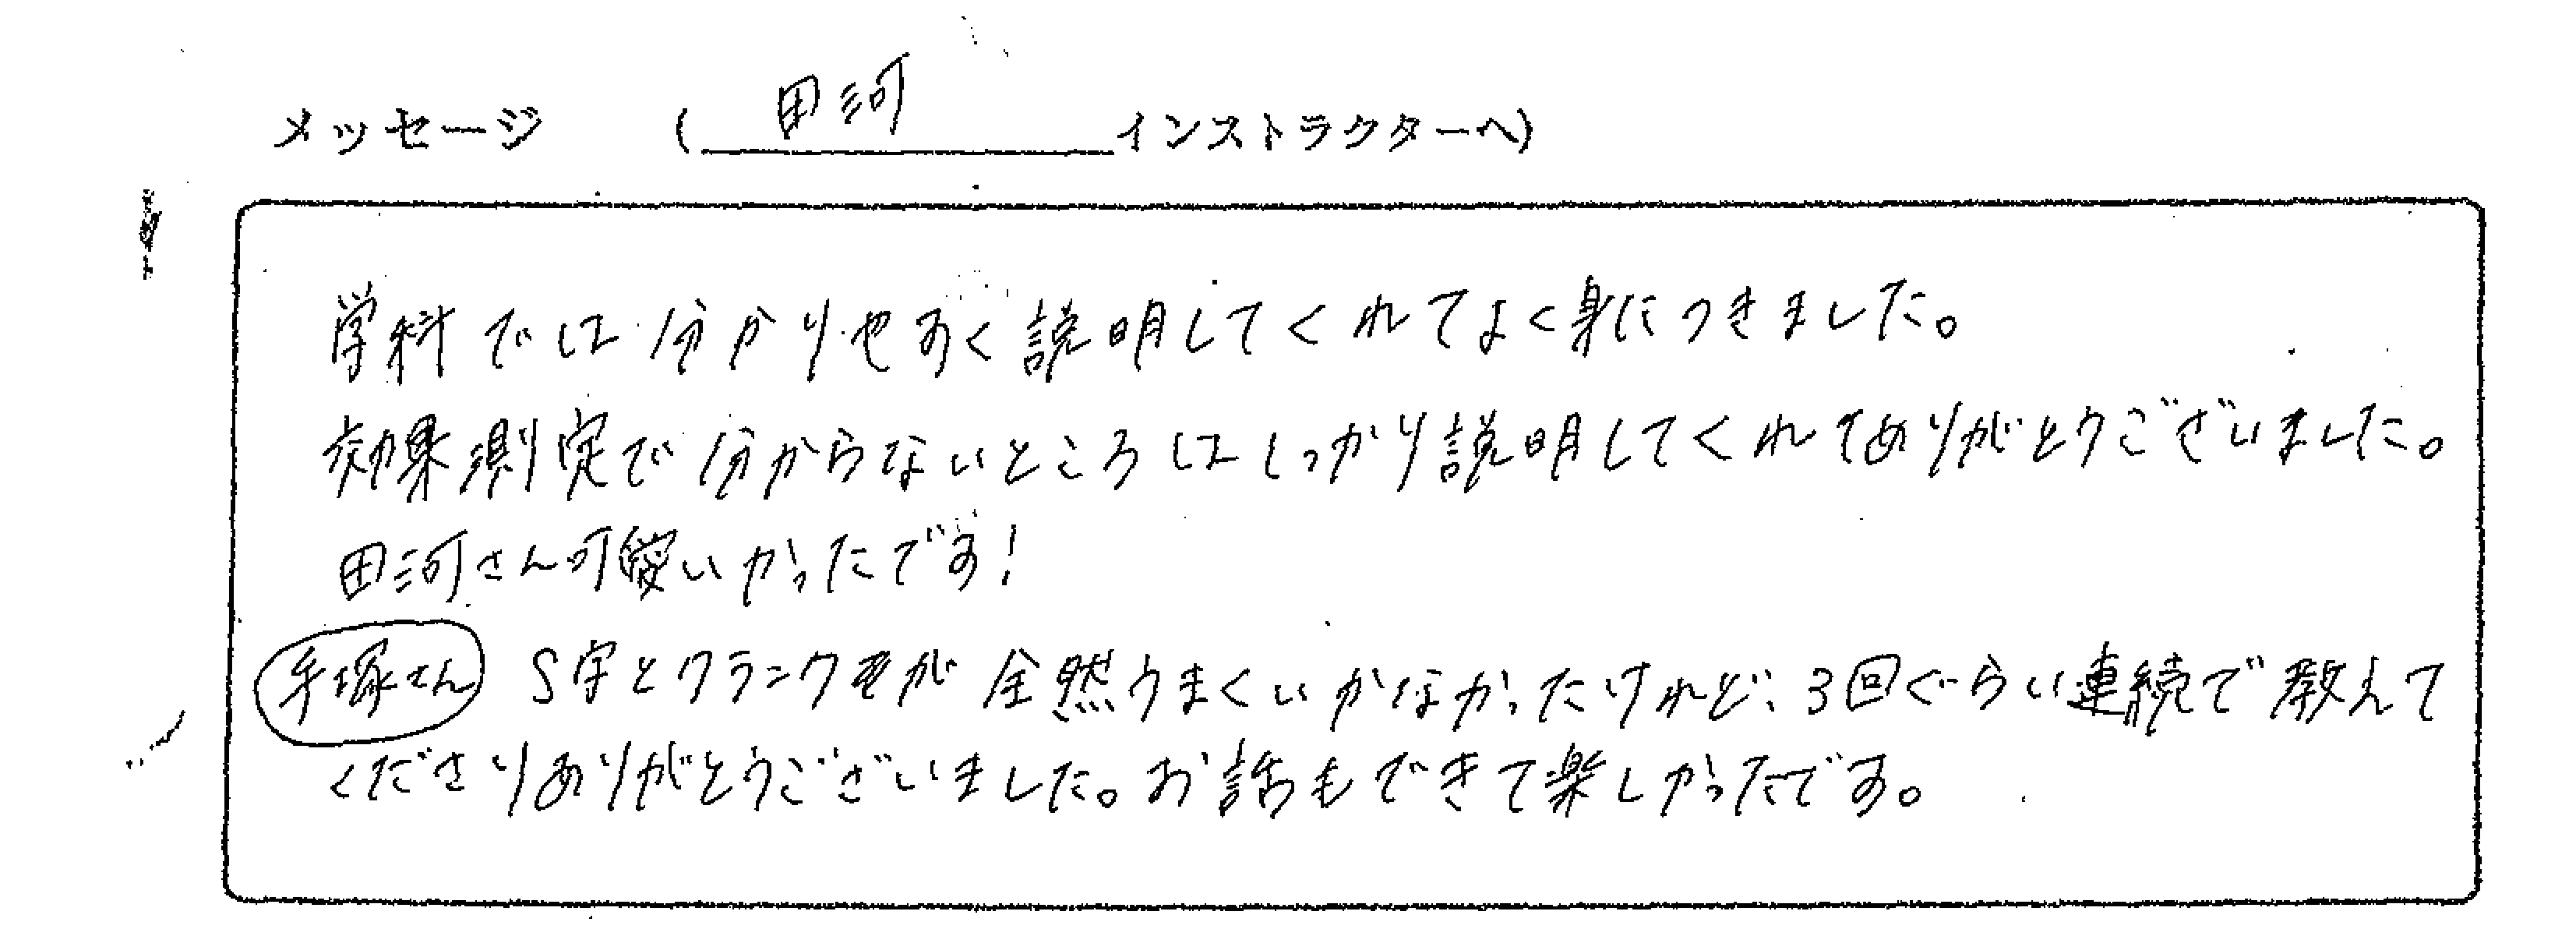 メッセージ (田河インストラクターへ)
学科では分かりやすく説明してくれてよく身につきました。
効果測定で分からないところはしっかり説明してくれてありがとうございました。
田河さん可愛いかったです!
手塚さん S字とクランクが全然うまくいかなかったけれど、3回ぐらい連続で教えて
くださりありがとうございました。お話もできて楽しかったです。